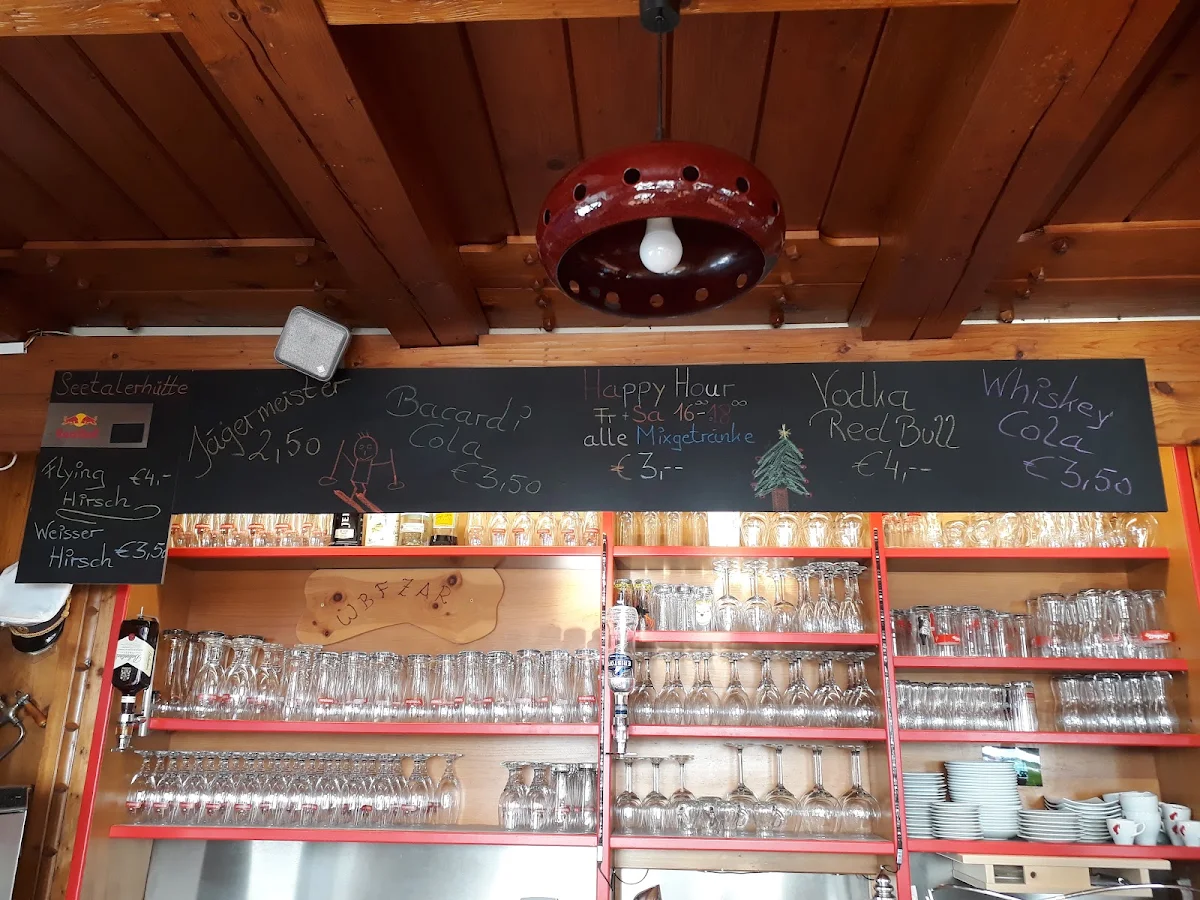 Seetalerhütte
Flying €4,-
Hirsch
Weisser
Hirsch €3,50
Jägermeister
2,50
Bacardi
Cola
€3,50
Happy Hour
Fr + Sa 16-18⁰⁰
alle Mixgetränke
€3,--
Vodka
Red Bull
€4,--
Whiskey
Cola
€3,50
WBFZAR